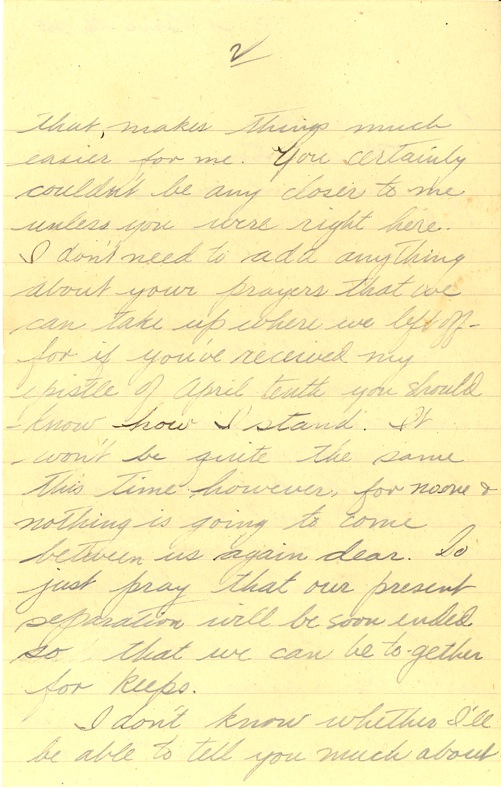 2
that, makes things much
easier for me. You certainly
couldn't be any closer to me
unless you were right here.
I don't need to add anything
about your prayers that we
can take up where we left off-
for if you've received my
epistle of April tenth you should
know how I stand. It
won't be quite the same
this time however, for no one &
nothing is going to come
between us again dear. So
just pray that our present
separation will be soon ended
so that we can be to-gether
for keeps.
I don't know whether I'll
be able to tell you much about